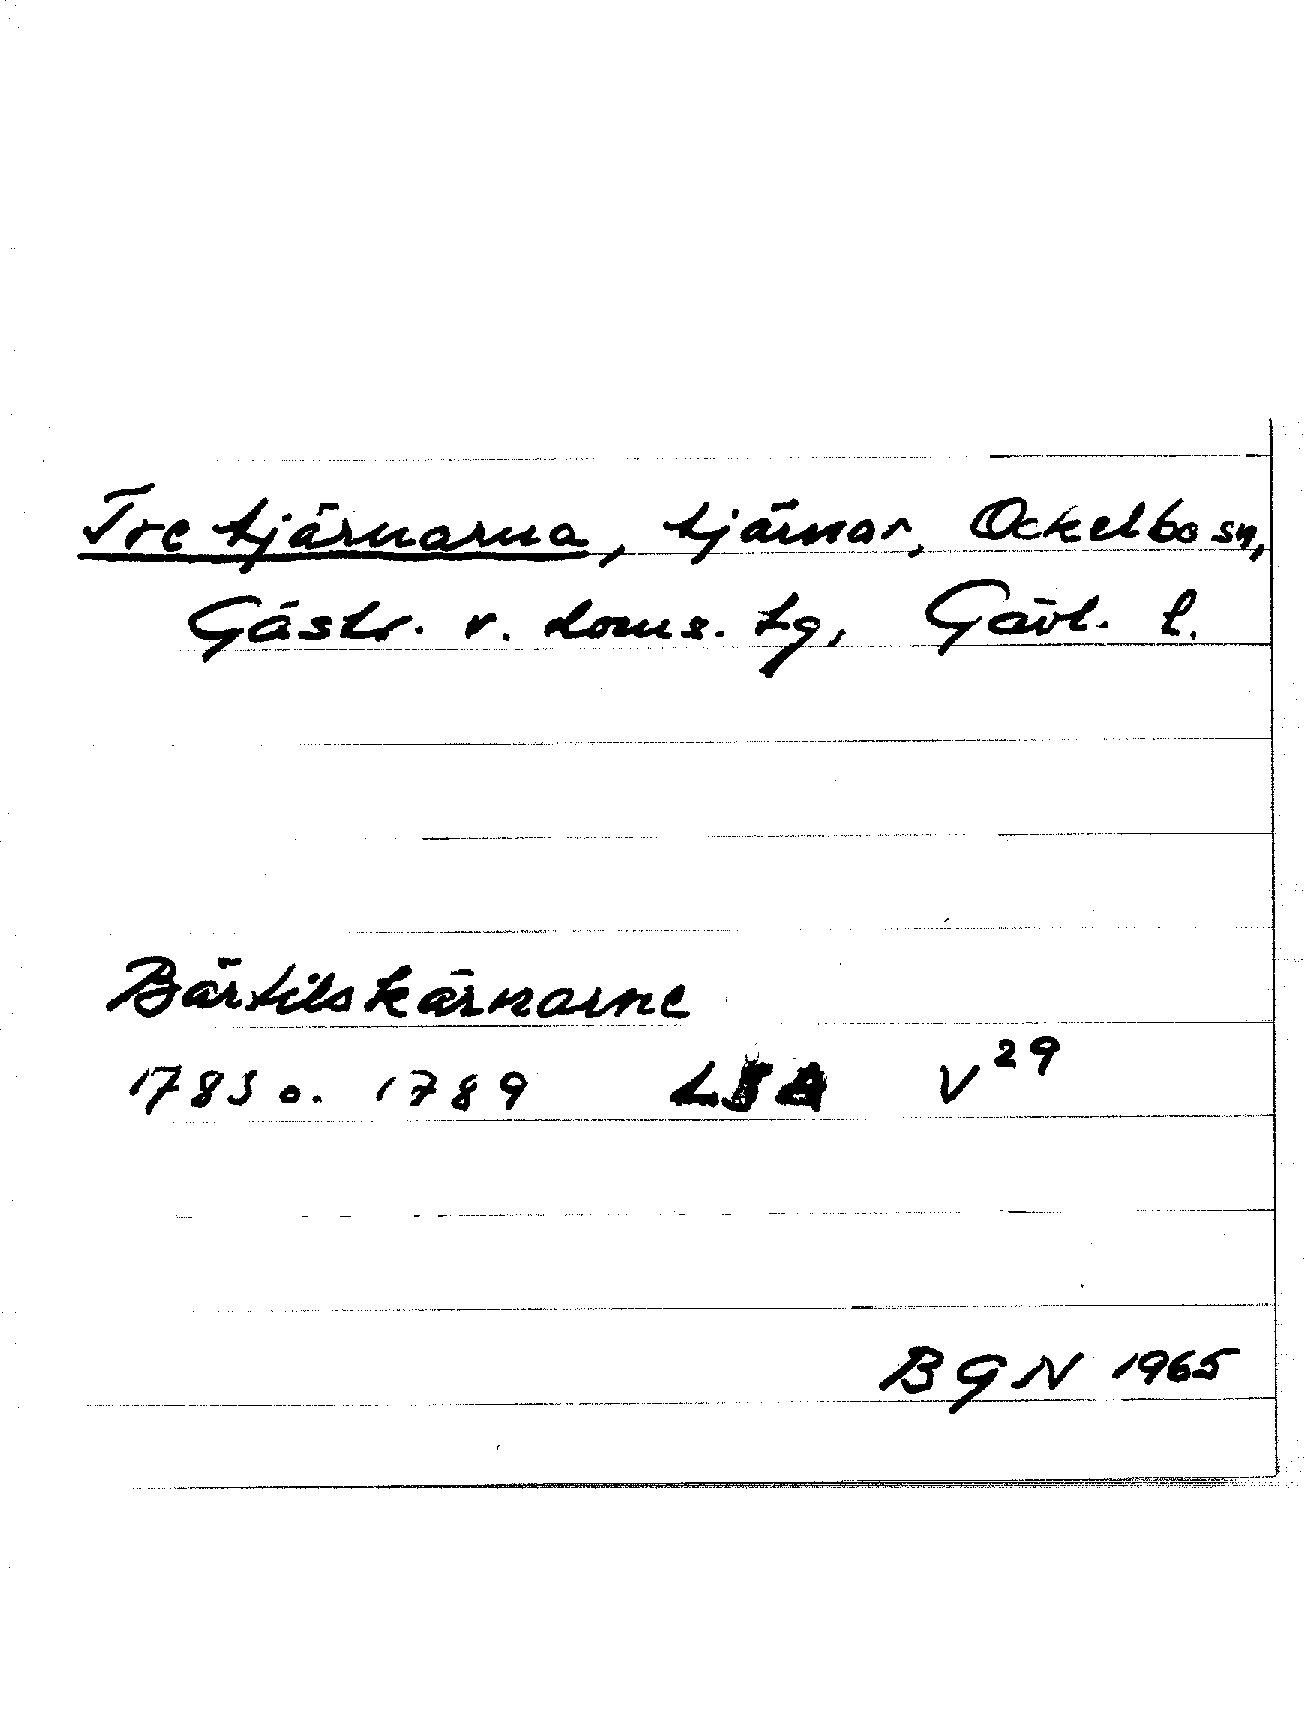 Tre tjärnarna, tjärnar, Ockelbo sn,
Gästr. v. doms. tg, Gävl. l.
Bärtilskärnarne
1783 o. 1789 LSA V29
BGN 1965